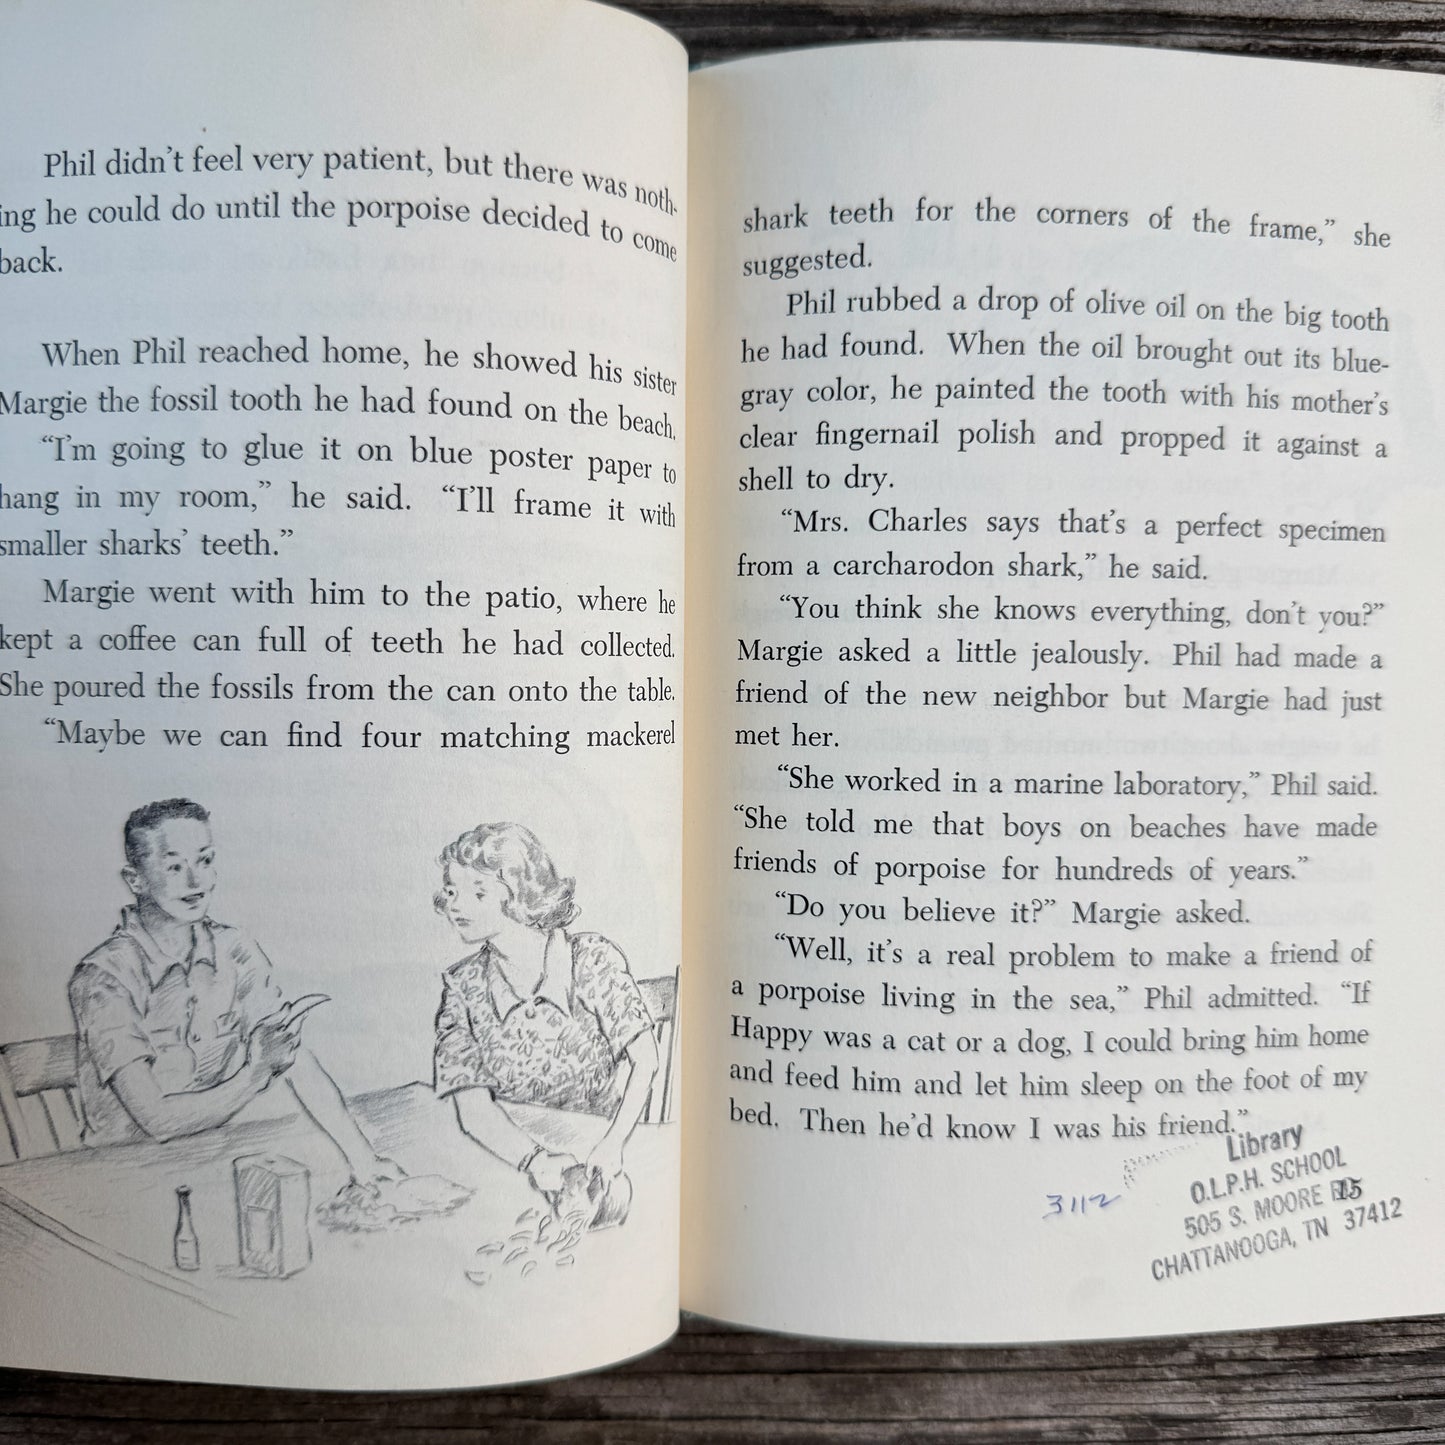 Phil didn't feel very patient, but there was noth-
ing he could do until the porpoise decided to come
back.
When Phil reached home, he showed his sister
Margie the fossil tooth he had found on the beach.
“I'm going to glue it on blue poster paper to
hang in my room,” he said. “I'll frame it with
smaller sharks' teeth.”
Margie went with him to the patio, where he
kept a coffee can full of teeth he had collected.
She poured the fossils from the can onto the table.
“Maybe we can find four matching mackerel
shark teeth for the corners of the frame,” she
suggested.
Phil rubbed a drop of olive oil on the big tooth
he had found. When the oil brought out its blue-
gray color, he painted the tooth with his mother's
clear fingernail polish and propped it against a
shell to dry.
“Mrs. Charles says that's a perfect specimen
from a carcharodon shark,” he said.
“You think she knows everything, don't you?”
Margie asked a little jealously. Phil had made a
friend of the new neighbor but Margie had just
met her.
“She worked in a marine laboratory,” Phil said.
“She told me that boys on beaches have made
friends of porpoise for hundreds of years.”
“Do you believe it?” Margie asked.
“Well, it's a real problem to make a friend of
a porpoise living in the sea,” Phil admitted. “If
Happy was a cat or a dog, I could bring him home
and feed him and let him sleep on the foot of my
bed. Then he'd know I was his friend.”
Library
O.L.P.H. SCHOOL
505 S. MOORE
CHATTANOOGA, TN 37412
15
3112